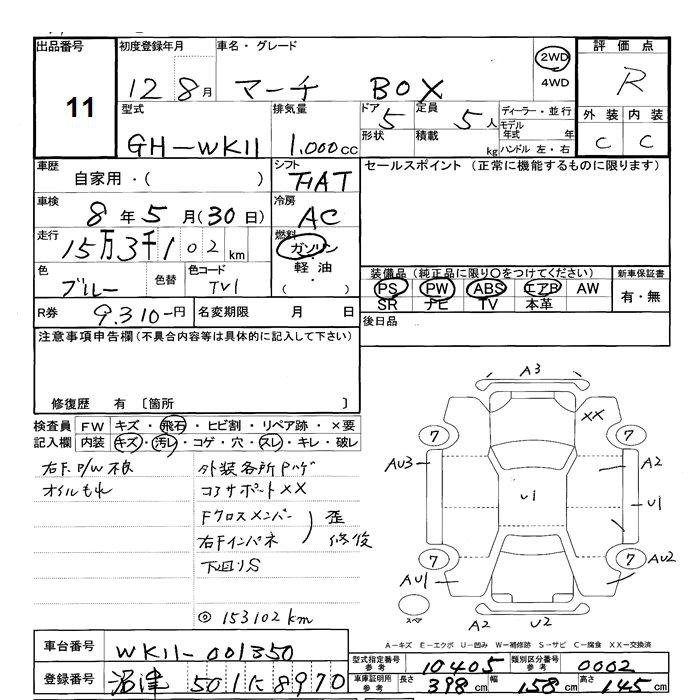 出品番号 初度登録年月 車名・グレード 評価点
11
12 8月 マーチ BOX 2WD 4WD R
型式 排気量 ドア 定員 ディーラー・並行 外装 内装
GH-WK11 1.000cc 5 5人 モデル年式 年 C C
形状 積載 kg ハンドル 左・右
車歴 シフト セールスポイント (正常に機能するものに限ります)
自家用・( ) FAT
車検 冷房
8年5月(30日) AC
走行 燃料
15万3千102km ガソリン
軽油
( )
色 色替 色コード
ブルー TV1
装備品(純正品に限り○をつけてください) 新車保証書
PS PW ABS エアB AW 有・無
SR ナビ TV 本革
R券 9.310-円 名変期限 月 日
後日品
注意事項申告欄(不具合内容等は具体的に記入して下さい)
修復歴 有 〔箇所 〕
検査員 FW キズ・飛石・ヒビ割・リペア跡・×要
記入欄 内装 キズ・汚レ・コゲ・穴・スレ・キレ・破レ
右F P/W不良
オイルもれ
外装各所Pハゲ
コアサポートXX
Fクロスメンバー
右Fインパネ
歪
修復
下回りS
◎153102km
A3
XX
7 7
AU3 A2
U1 U1
7 7
AU1 AU2
スペア
A2 U2
A-キズ E-エクボ U-凹み W-補修跡 S-サビ C-腐食 XX-交換済
車台番号 WK11-001350
登録番号 沼津 501 に 8970
型式指定番号 参考 10405 類別区分番号 参考 0002
車庫証明用 参考 長さ 398cm 幅 158cm 高さ 145cm